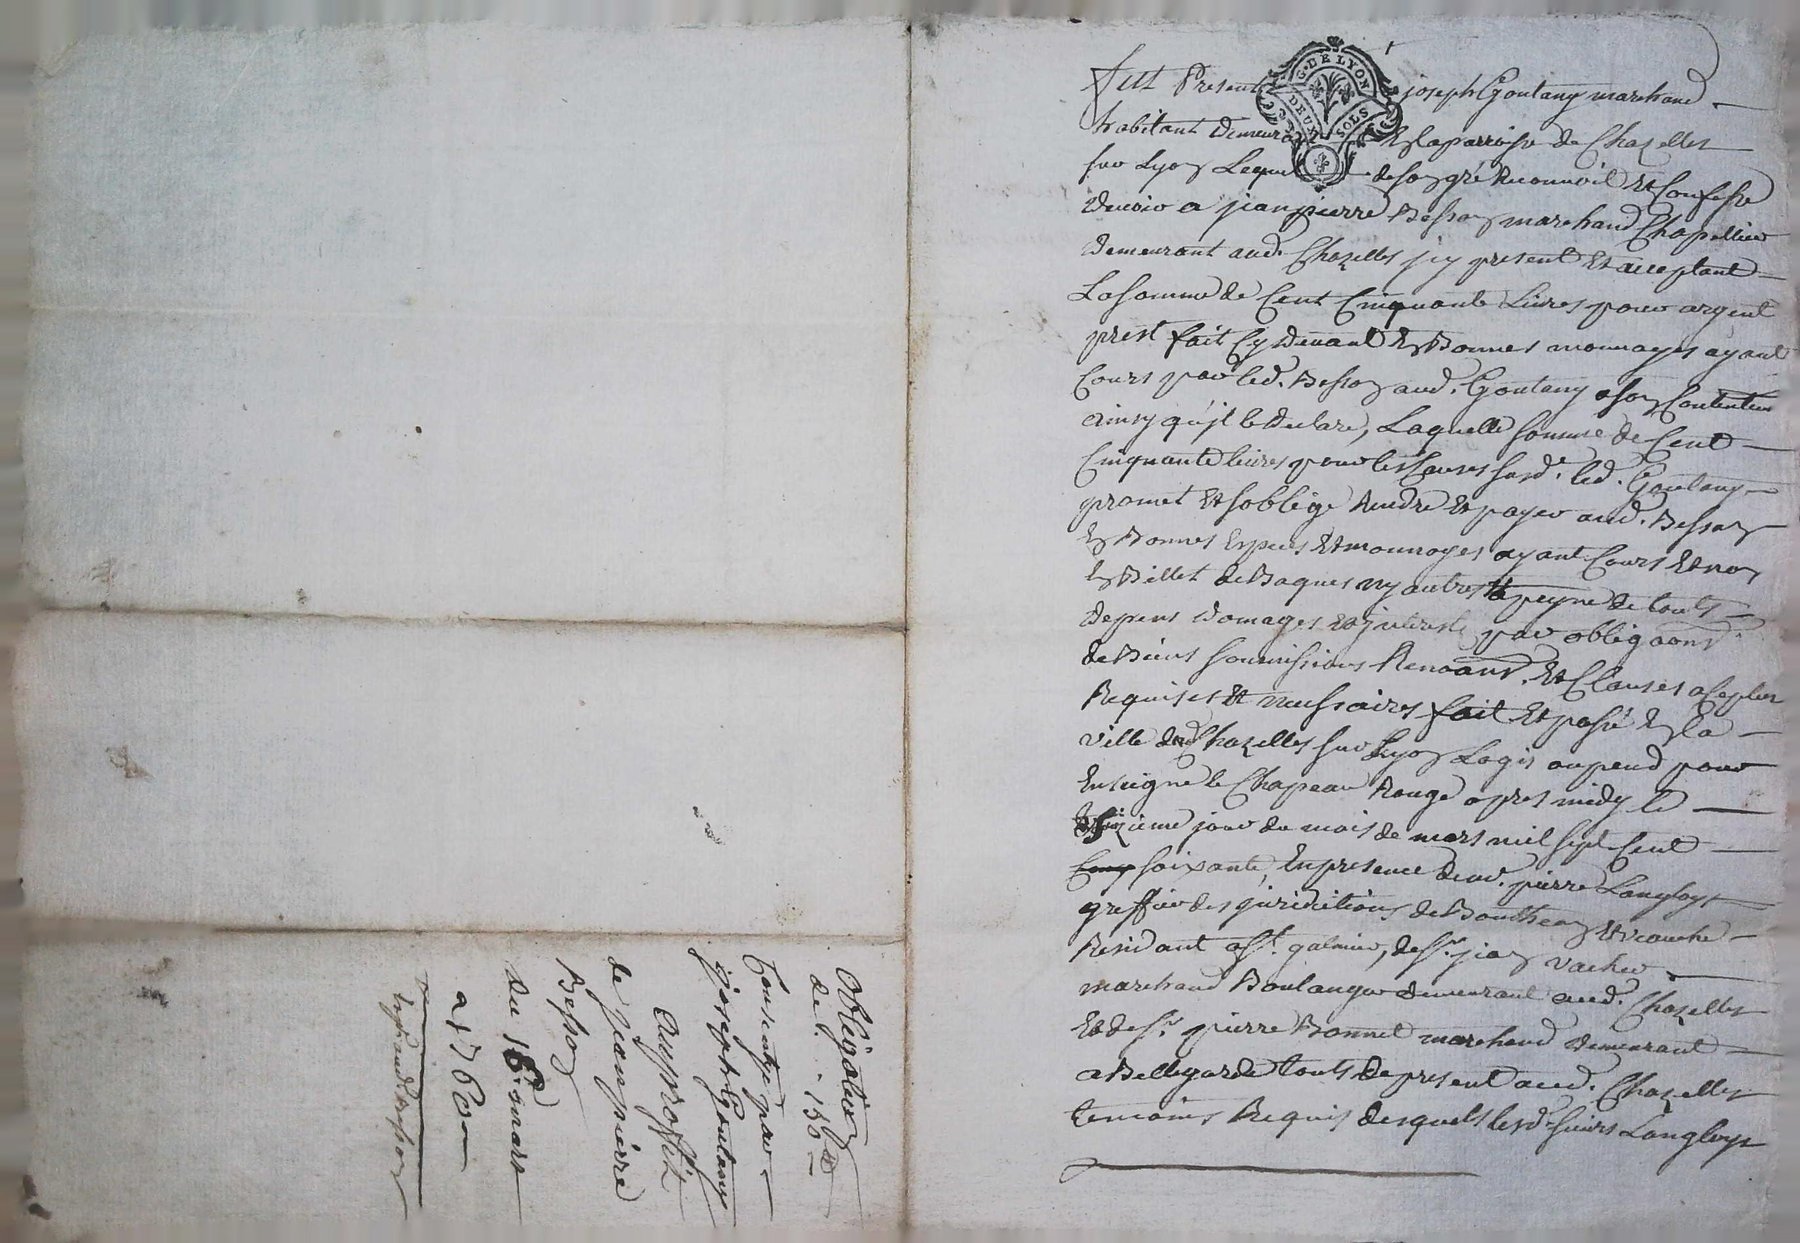 G. DE LYON
DEUX SOLS
fut Present joseph Goutany marchand
habitant demeurant En la parroisse de Chazelles
sur Lyon Lequel de son gré Reconnoit Et Confesse
devoir a jean pierre Besson marchand Chapellier
demeurant aud. Chazelles jcy present Et acceptant
La somme de Cent Cinquante Livres pour argent
prest fait Cy devant En Bonnes monnoyes ayant
Cours par led. Besson aud. Goutany a son Contentem
ainsy qu'jl le declare, Laquelle somme de Cent
Cinquante livres pour les Causes susd. led. Goutany
promet Et soblige Rendre Et payer aud. Besson
En Bonnes Especes Et monnoyes ayant Cours Et non
En Billet de Baques ny autres a peyne de touts
depens domages Et jnterests par obligaons
de Biens soumissions Renoans. Et Clauses a Ce plus
Requises Et necessaires fait Et passé En la
ville de Chazelles sur Lyon Logis ou pend pour
Enseigne le Chapeau Rouge apres midy le
seizieme jour du mois de mars mil sept Cent
soixante, En presence de mr. pierre Langloys
greffier des juridictions de Bouthean Et veauche
Residant a St. galmier, de Sr. jean vacher
marchand Boulanger demeurant aud. Chazelles
Et de Sr. pierre Bonnet marchand demeurant
a Bellegarde touts de present aud. Chazelles
temoins Requis desquels lesd. sieurs Langloys
Obligation
de 150
Consentye par
joseph Goutany
au proffit
de jean pierre
Besson
du 16 mars
1760